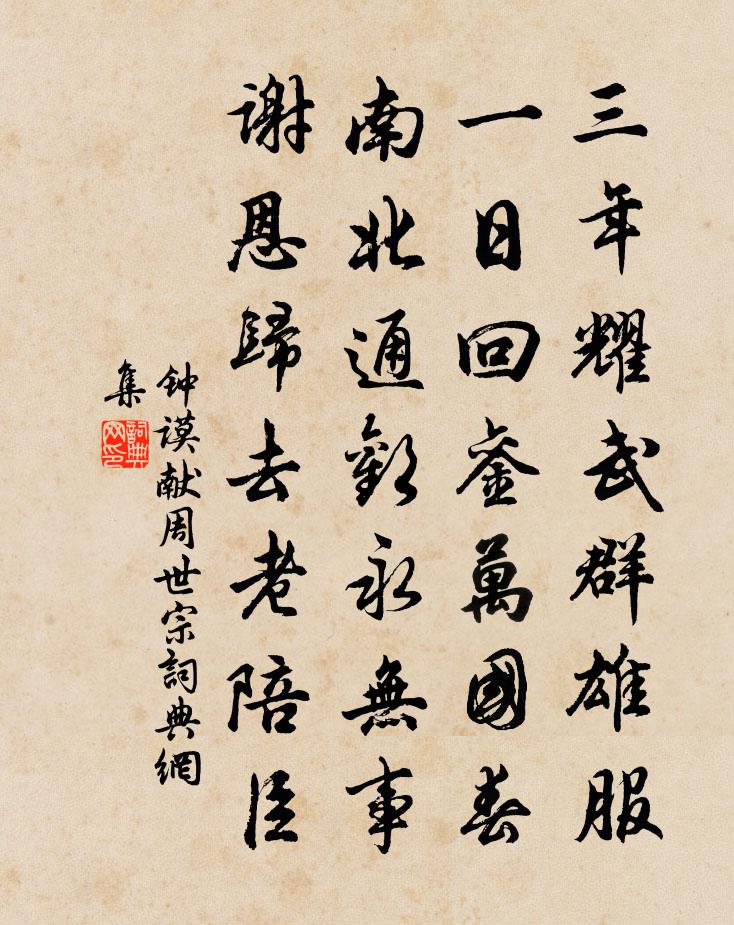 三年耀武群雄服
一日回銮萬國春
南北通歡永無事
谢恩歸去老陪臣
钟谟献周世宗詞典網
集
詞典
网印